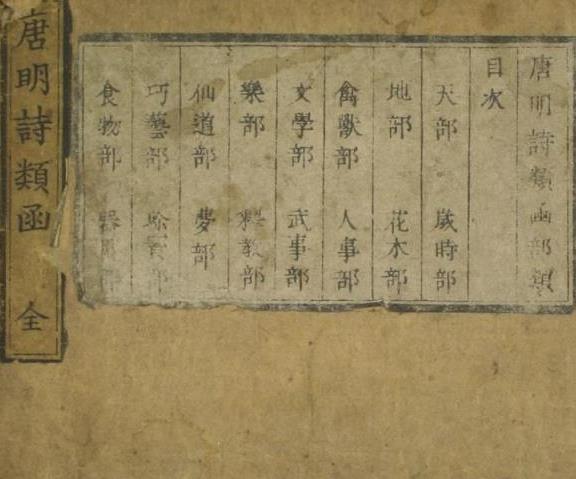 唐明詩類函部類
目次
天部 歲時部
地部 花木部
禽獸部 人事部
文學部 武事部
樂部 釋教部
仙道部 夢部
巧藝部
食物部 器用部
唐明詩類函 全